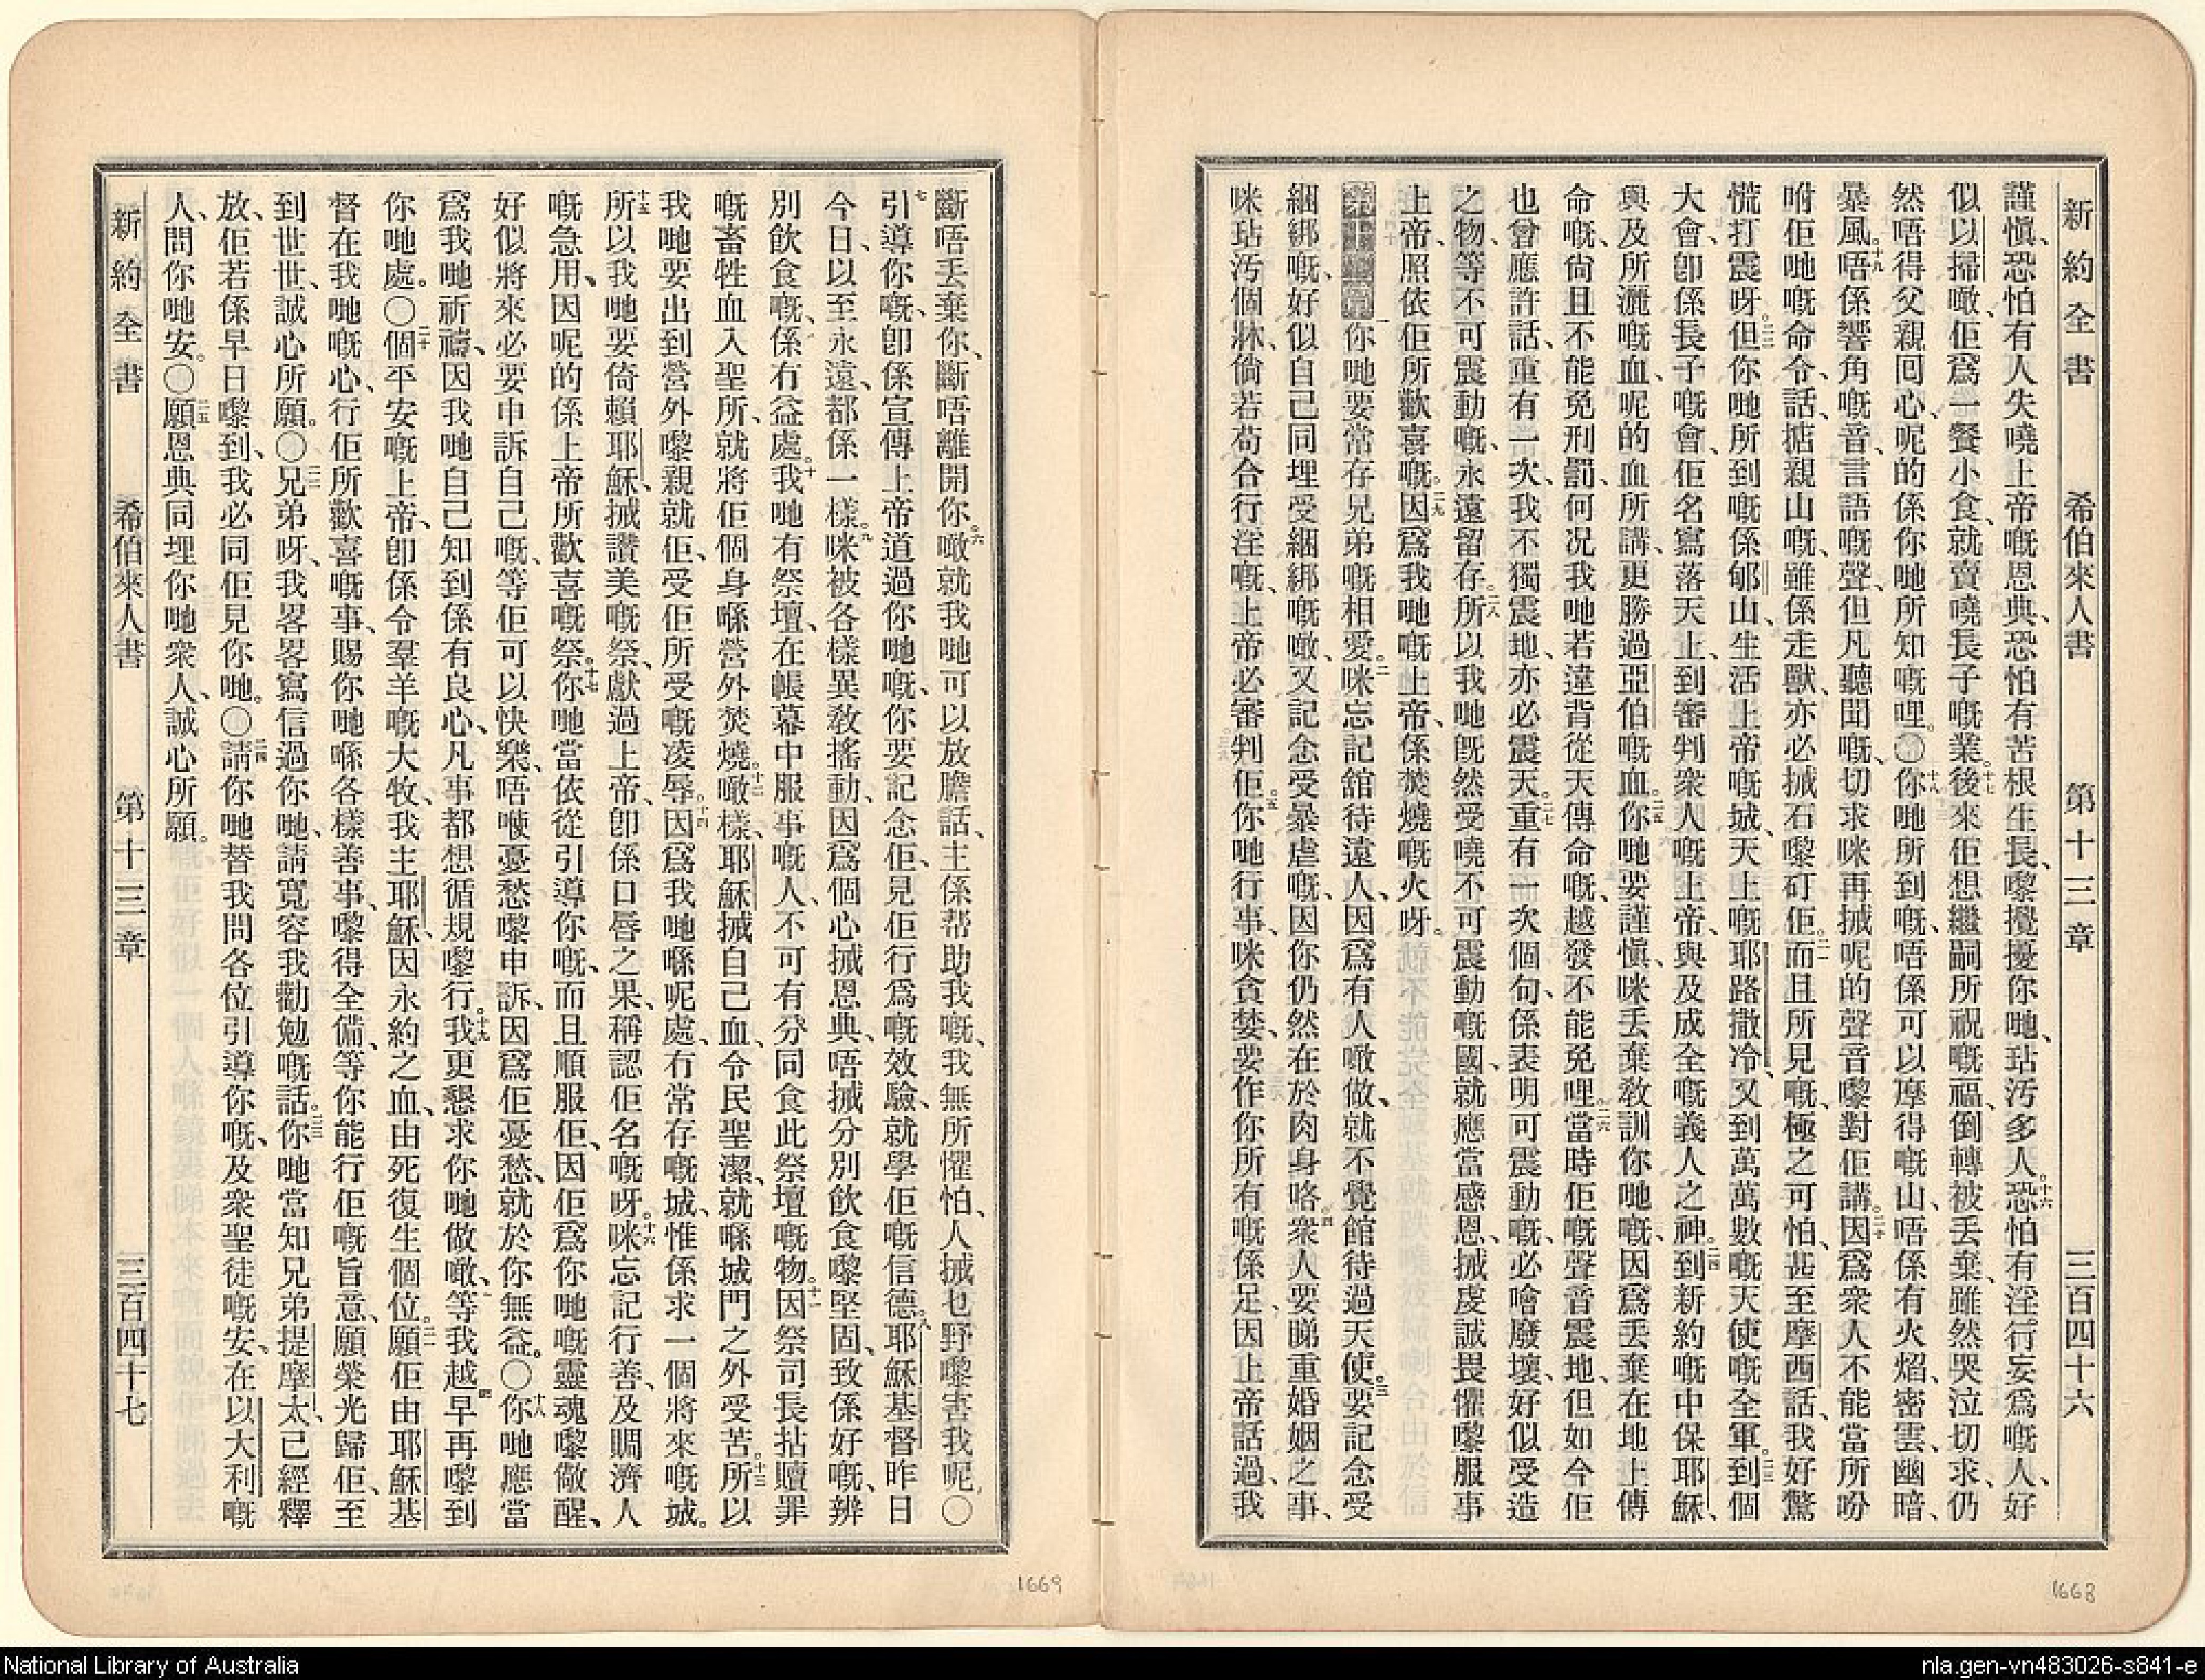 新約全書 希伯來人書 第十三章 三百四十六
謹愼、恐怕有人失嘵上帝嘅恩典、恐怕有苦根生長、嚟攪擾你哋、玷汚多人。十六恐怕有淫行妄爲嘅人、好
似以掃噉、佢爲一餐小食、就賣嘵長子嘅業。十七後來佢想繼嗣所祝嘅福、倒轉被丢棄、雖然哭泣切求、仍
然唔得父親囘心、呢的係你哋所知嘅哩。○十八你哋所到嘅、唔係可以摩得嘅山、唔係有火焰、密雲、幽暗、
暴風。十九唔係響角嘅音、言語嘅聲、但凡聽聞嘅、切求咪再搣呢的聲音嚟對佢講。二十因爲衆人不能當所吩
咐佢哋嘅命令、話、掂親山嘅、雖係走獸、亦必搣石嚟矴佢。二一而且所見嘅、極之可怕、甚至摩西話、我好驚
慌打震呀。二二但你哋所到嘅係郇山、生活上帝嘅城、天上嘅耶路撒冷、又到萬萬數嘅天使嘅全軍。二三到個
大會、卽係長子嘅會、佢名寫落天上、到審判衆人嘅上帝、與及成全嘅義人之神。二四到新約嘅中保耶穌、
與及所灑嘅血、呢的血所講、更勝過亞伯嘅血。二五你哋要謹愼、咪丢棄敎訓你哋嘅、因爲丢棄在地上傳
命嘅、尙且不能免刑罰、何况我哋若違背從天傳命嘅、越發不能免哩。二六當時佢嘅聲音震地、但如今佢
也曾應許話、重有一次、我不獨震地、亦必震天。二七重有一次個句、係表明可震動嘅、必噲廢壞、好似受造
之物、等不可震動嘅、永遠留存。二八所以我哋旣然受嘵不可震動嘅國、就應當感恩、搣虔誠畏懼嚟服事
上帝、照依佢所歡喜嘅。二九因爲我哋嘅上帝、係焚燒嘅火呀。
第十三章一你哋要常存兄弟嘅相愛。二咪忘記舘待遠人、因爲有人噉做、就不覺舘待過天使。三要記念受
綑綁嘅、好似自己同埋受綑綁嘅噉、又記念受暴虐嘅、因你仍然在於肉身咯。四衆人要睇重婚姻之事、
咪玷汚個牀、倘若茍合行淫嘅、上帝必審判佢。五你哋行事、咪貪婪、要作你所有嘅係足、因上帝話過、我
新約全書 希伯來人書 第十三章 三百四十七
斷唔丢棄你、斷唔離開你。六噉就我哋可以放膽話、主係帮助我嘅、我無所懼怕、人搣乜野嚟害我呢、○
七引導你嘅、卽係宣傳上帝道過你哋嘅、你要記念佢、見佢行爲嘅效驗、就學佢嘅信德。八耶穌基督昨日
今日、以至永遠、都係一樣。九咪被各樣異敎搖動、因爲個心搣恩典、唔搣分別飲食嚟堅固、致係好嘅、辨
別飲食嘅、係冇益處。十我哋有祭壇、在帳幕中服事嘅人、不可有分同食此祭壇嘅物。十一因祭司長拈贖罪
嘅畜牲血入聖所、就將佢個身喺營外焚燒。十二噉樣、耶穌搣自己血、令民聖潔、就喺城門之外受苦。十三所以
我哋要出到營外嚟親就佢、受佢所受嘅凌辱。十四因爲我哋喺呢處、冇常存嘅城、惟係求一個將來嘅城。
十五所以我哋要倚賴耶穌、搣讚美嘅祭、獻過上帝、卽係口唇之果、稱認佢名嘅呀。十六咪忘記行善、及賙濟人
嘅急用、因呢的係上帝所歡喜嘅祭。十七你哋當依從引導你嘅、而且順服佢、因佢爲你哋嘅靈魂嚟儆醒、
好似將來必要申訴自己嘅、等佢可以快樂、唔㖭憂愁嚟申訴、因爲佢憂愁、就於你無益。○十八你哋應當
爲我哋祈禱、因我哋自己知到係有良心、凡事都想循規嚟行。十九我更懇求你哋做噉、等我越早再嚟到
你哋處。○二十個平安嘅上帝、卽係令羣羊嘅大牧、我主耶穌、因永約之血、由死復生個位。二一願佢由耶穌基
督在我哋嘅心、行佢所歡喜嘅事、賜你哋喺各樣善事、嚟得全備、等你能行佢嘅旨意、願榮光歸佢、至
到世世、誠心所願。○二二兄弟呀、我畧畧寫信過你哋、請寬容我勸勉嘅話。二三你哋當知兄弟提摩太已經釋
放、佢若係早日嚟到、我必同佢見你哋。○二四請你哋替我問各位引導你嘅、及衆聖徒嘅安、在以大利嘅
人、問你哋安。○二五願恩典同埋你哋衆人、誠心所願。
1669
1668
National Library of Australia
nla.gen-vn483026-s841-e